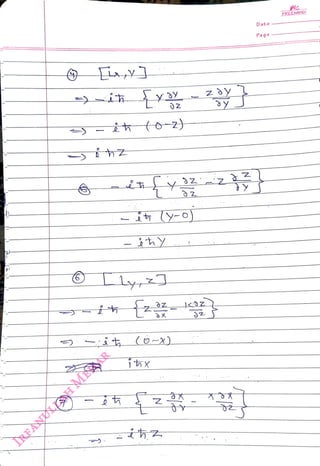 Date
Page
④ [Lx, y]
=> -iħ { y ∂y/∂z - z ∂y/∂y }
=> - iħ (0-z)
=> iħz
⑤ - iħ { y ∂z/∂z - z ∂z/∂y }
- iħ (y-0)
- iħy
⑥ [Ly, z]
=> - iħ { z ∂z/∂x - x ∂z/∂z }
=> - iħ (0-x)
iħx
⑦ - iħ { z ∂x/∂x - x ∂x/∂z }
=> - iħz
IRFANULLAH